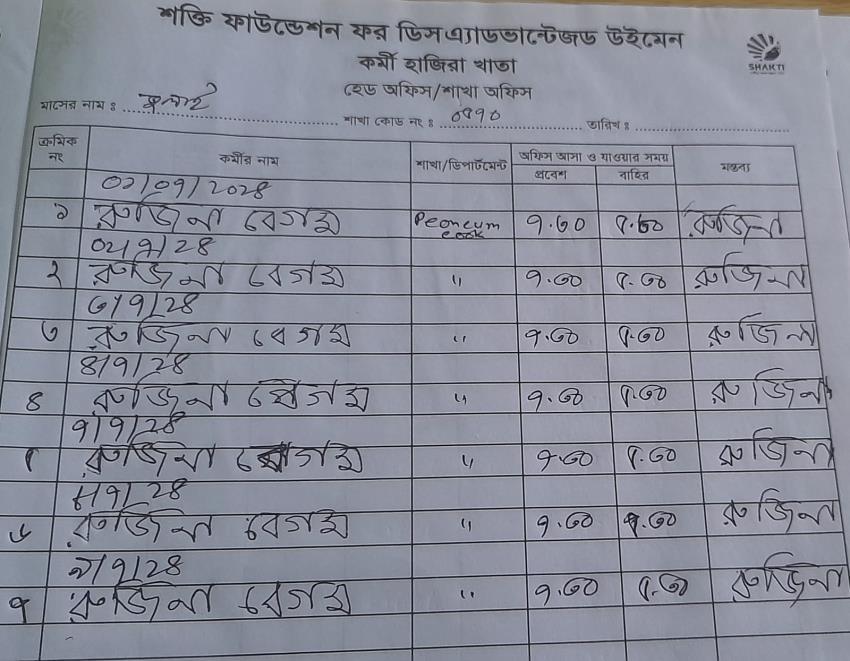 শক্তি ফাউন্ডেশন ফর ডিসএ্যাডভান্টেজড উইমেন
কর্মী হাজিরা খাতা
SHAKTI
হেড অফিস/শাখা অফিস
মাসের নাম ঃ জুলাই শাখা কোড নং ঃ ০৭৭০ তারিখ ঃ
ক্রমিক নং কর্মীর নাম শাখা/ডিপার্টমেন্ট অফিস আসা ও যাওয়ার সময় মন্তব্য
প্রবেশ বাহির
০১/০৭/২০২৪
১ রুজিনা বেগম Peoncum cook ৭.৩০ ৫.৩০ রুজিনা
০২/৭/২৪
২ রুজিনা বেগম " ৭.৩০ ৫.৩০ রুজিনা
৩/৭/২৪
৩ রুজিনা বেগম " ৭.৩০ ৫.৩০ রুজিনা
৪/৭/২৪
৪ রুজিনা বেগম " ৭.৩০ ৫.৩০ রুজিনা
৭/৭/২৪
৫ রুজিনা বেগম " ৭.৩০ ৫.৩০ রুজিনা
৮/৭/২৪
৬ রুজিনা বেগম " ৭.৩০ ৫.৩০ রুজিনা
৯/৭/২৪
৭ রুজিনা বেগম " ৭.৩০ ৫.৩০ রুজিনা